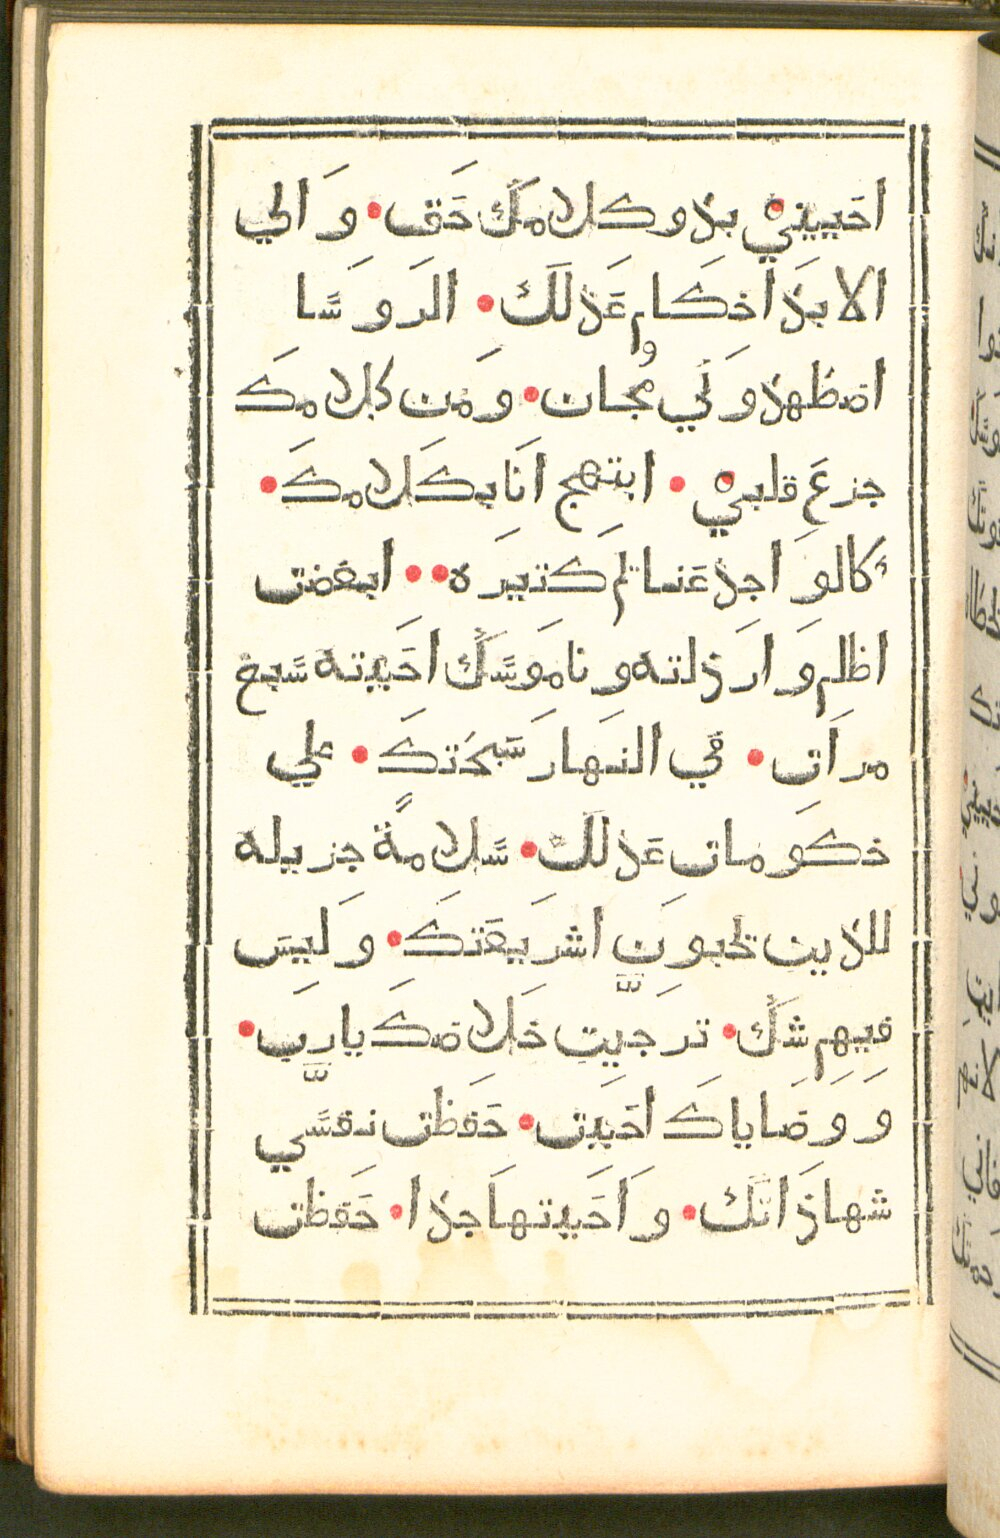 احَييني بدو كلامكَ حَق • وَ الي
الابدَ احكَام عَدلكَ • الرَوسَا
اضطهدوَني مجُان • وَمَن كلامكَ
جزعَ قلبي • ابتهج انَا بكَلامكَ •
كالوَاجد غنايم كتيرَه •• ابغضت
اظلم وَارَذلته و نامَوسَكَ احَببته سَبع
مرَات • في النهَار سَبحَتكَ • علي
حكوَمات عَدلكَ • سَلامةً جزيله
للذين يحبوَنَّ اشرَيعَتكَ • وَليسَ
فيهم شكَ • ترَجيت خَلاصكَ يارَب •
وَ وَصَاياكَ احَببَت • حَفظت نفسَي
شهادَاتكَ • وَاحَببتهَا جدا • حَفظت